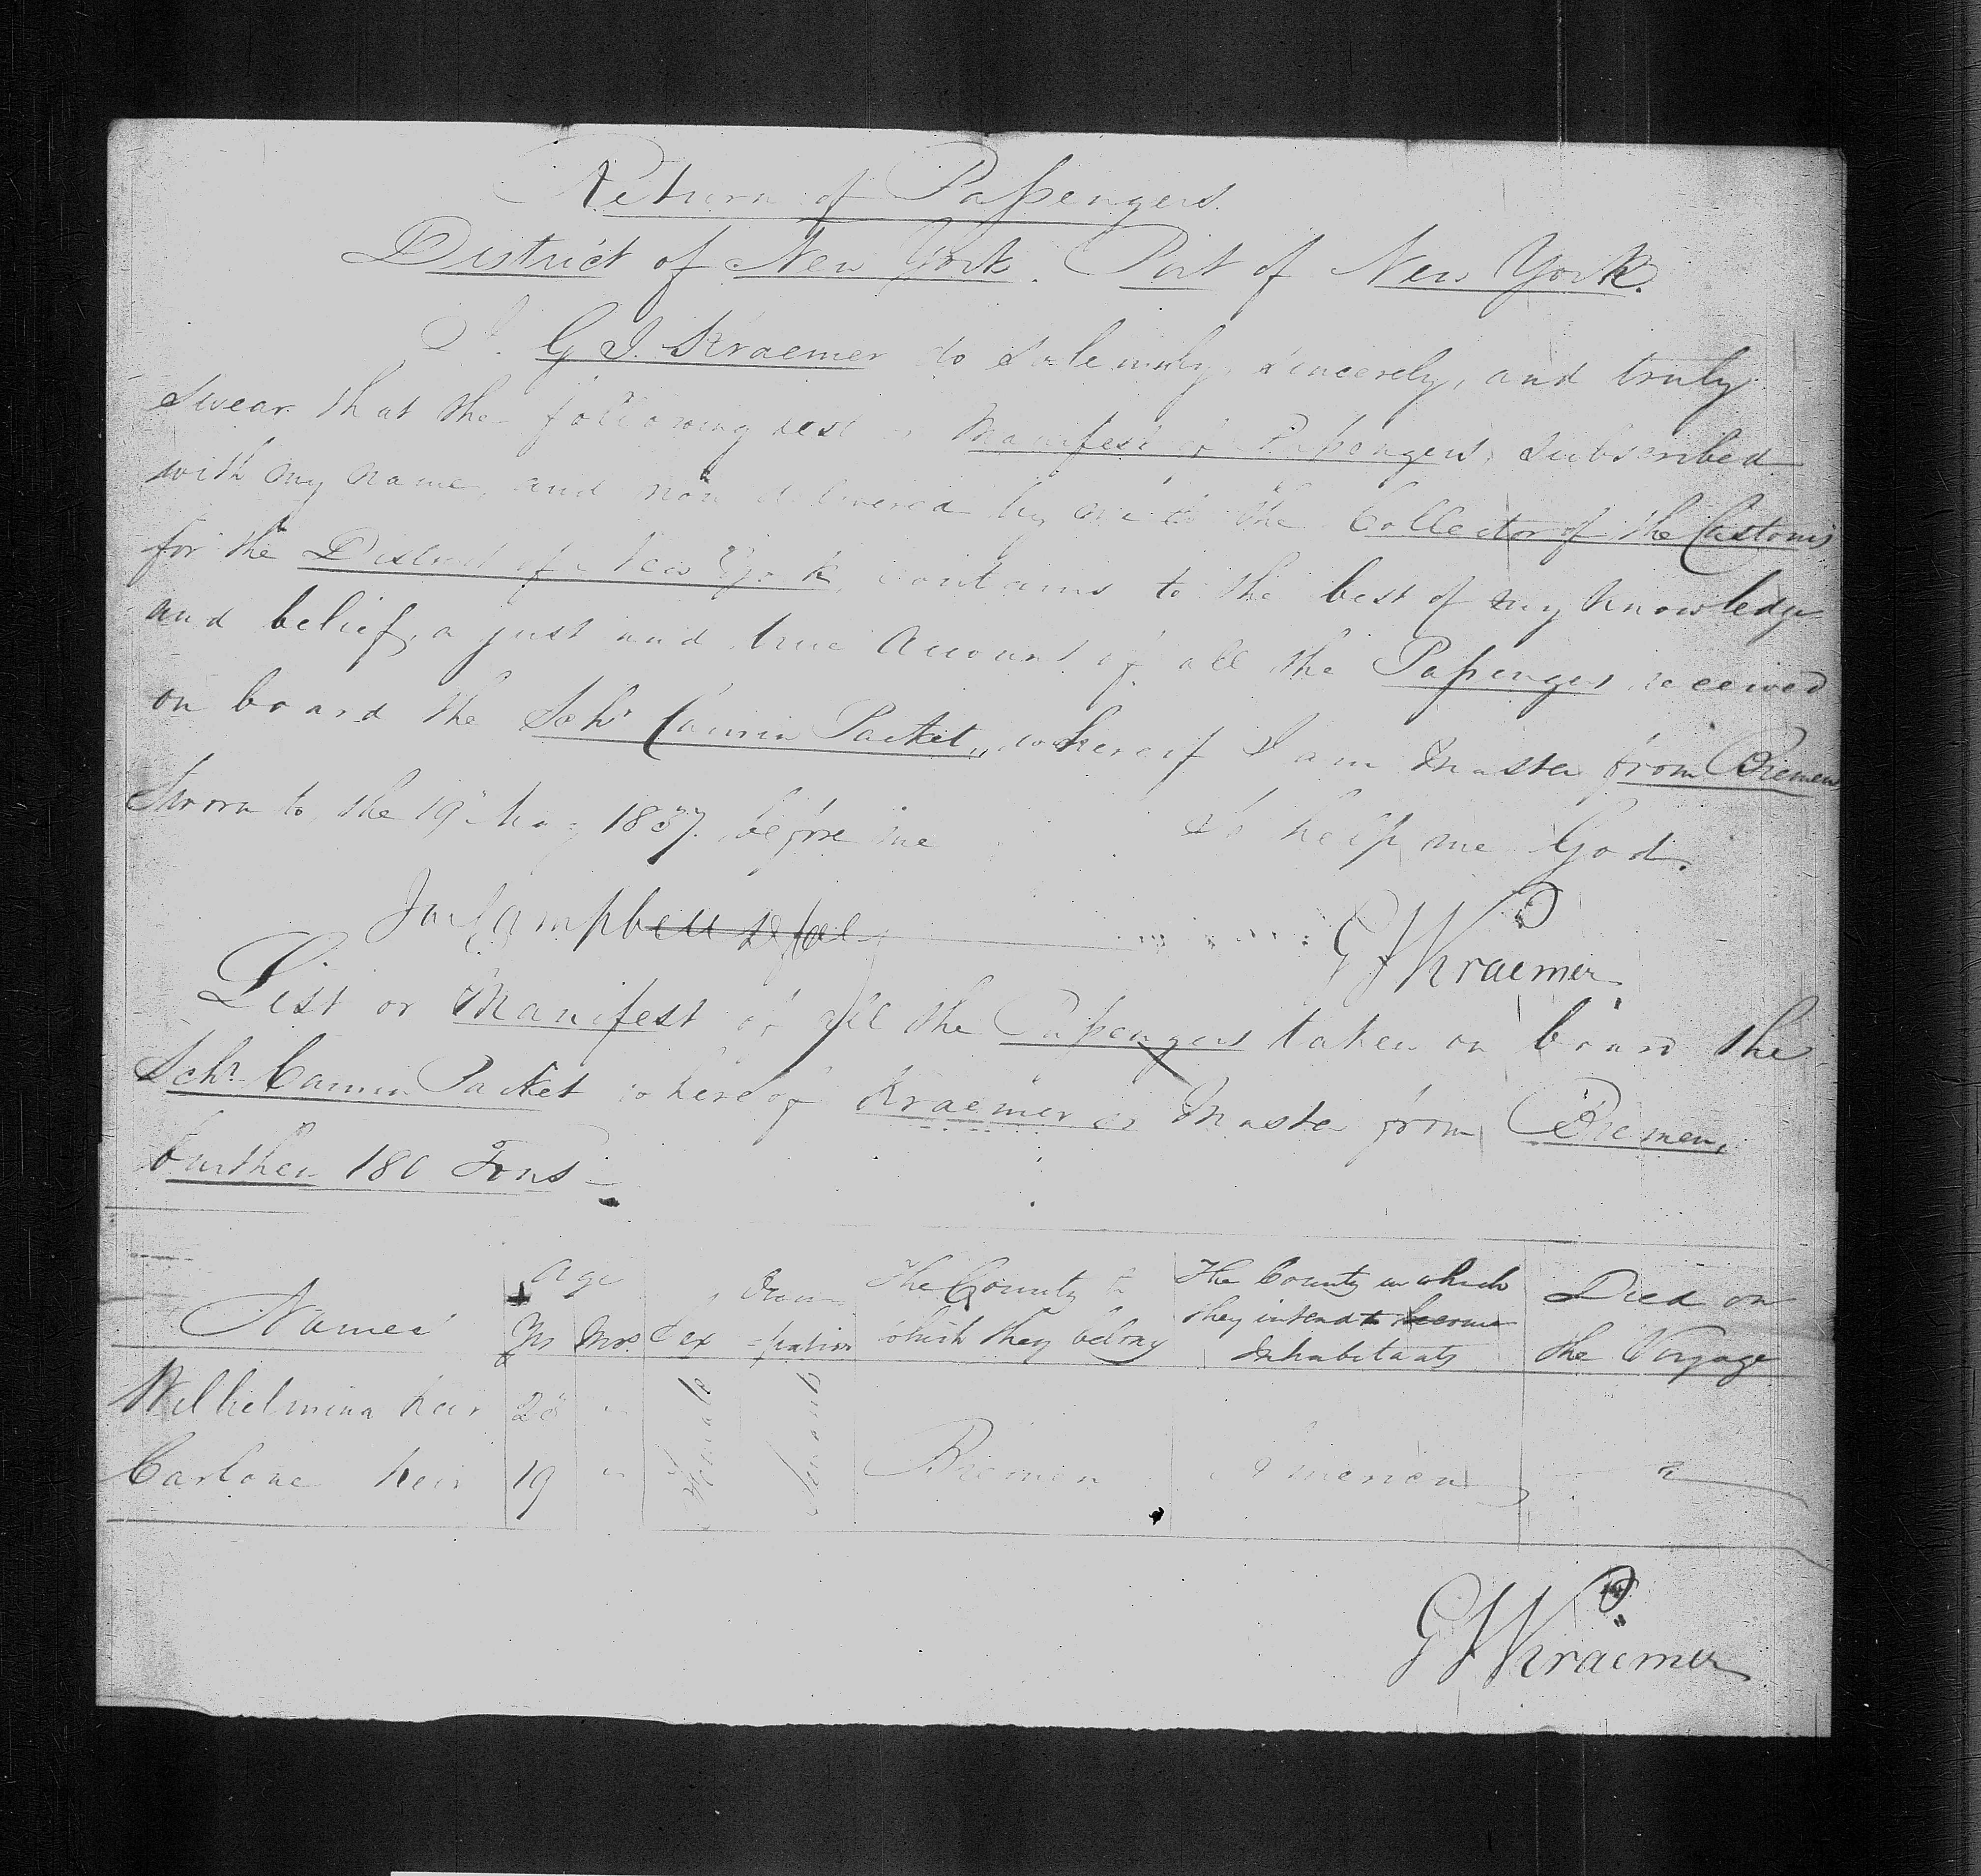 Return of Passengers.
District of New York. Port of New York.
I. G J. Kraemer do solemnly, sincerely, and truly
swear that the following list or Manifest of Passengers, subscribed
with my name, and now delivered by me to the Collector of the Customs
for the District of New York, contains to the best of my knowledge
and belief, a just and true account of all the Passengers received
on board the Schr Packet, whereof I am Master from Bremen
Sworn to, the 19 May 1837. before me So help me God.
Campbell G J Kraemer
List or Manifest of all the Passengers taken on board the
Schr. Packet whereof Kraemer is Master from Bremen,
burthen 180 Tons
Names Age Yrs Mos. Sex Occu-pation The County to which they belong The County in which they intend to become Inhabitants Died on the Voyage
Wilhelmina 28 "
19 " Female Servants Bremen America
G J Kraemer